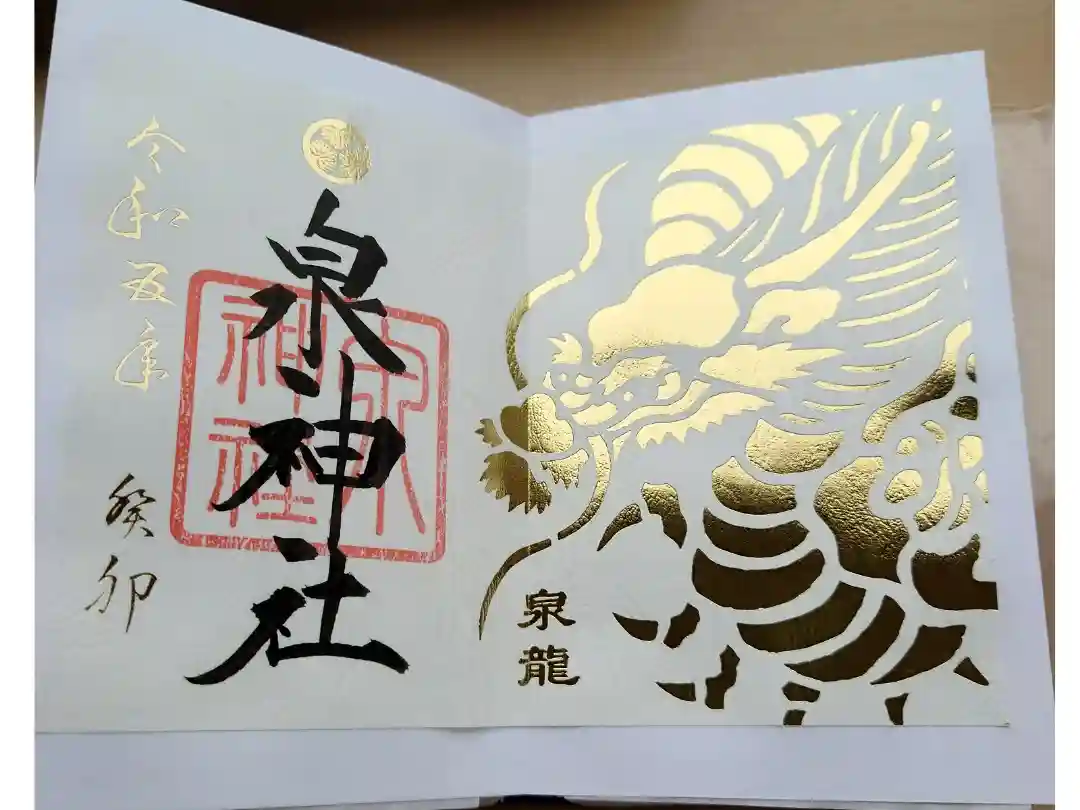 泉龍
泉神社
泉
神社
令和五年
癸卯